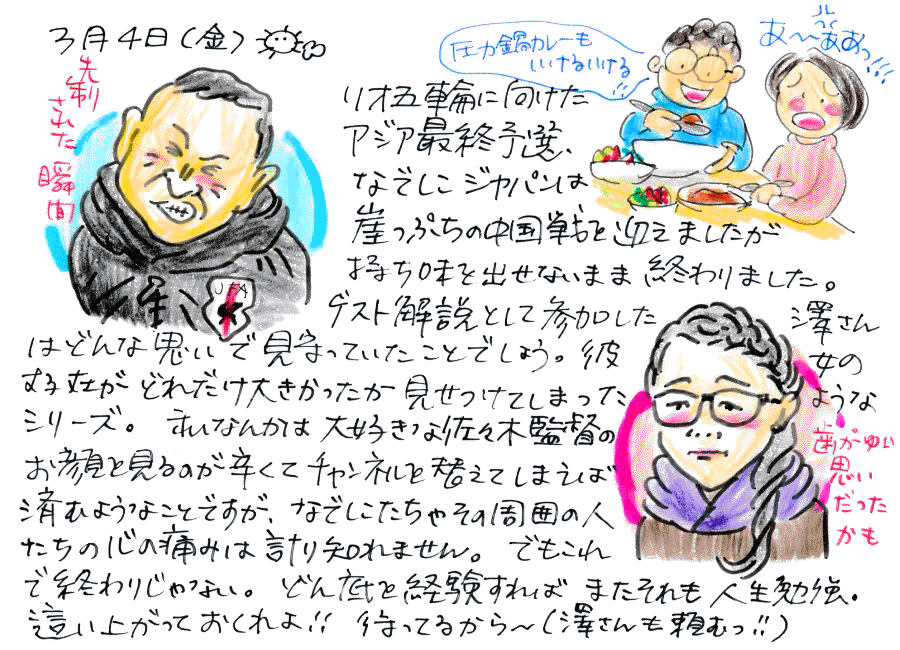 3月4日(金)
先制
された
瞬間
圧力鍋カレーも
いけるいける!!
あ〜ぁああっ!!!
リオ五輪に向けた
アジア最終予選、
なでしこジャパンは
崖っぷちの中国戦を迎えましたが
持ち味を出せないまま終わりました。
ゲスト解説として参加した澤さん
はどんな思いで見守っていたことでしょう。彼女の
存在がどれだけ大きかったか見せつけてしまったような
シリーズ。オレなんかは大好きな佐々木監督の
お顔を見るのが辛くてチャンネルを替えてしまえば
済むようなことですが、なでしこたちやその周囲の人
たちの心の痛みは計り知れません。でもこれ
で終わりじゃない。どん底を経験すればまたそれも人生勉強。
這い上がっておくれよ!! 待ってるから〜(澤さんも頼むっ!!)
歯がゆい
思い
だった
かも
JFA